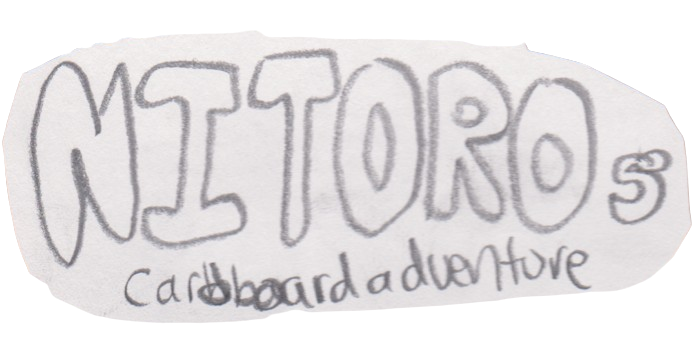 NITOROs
cardboard adventure